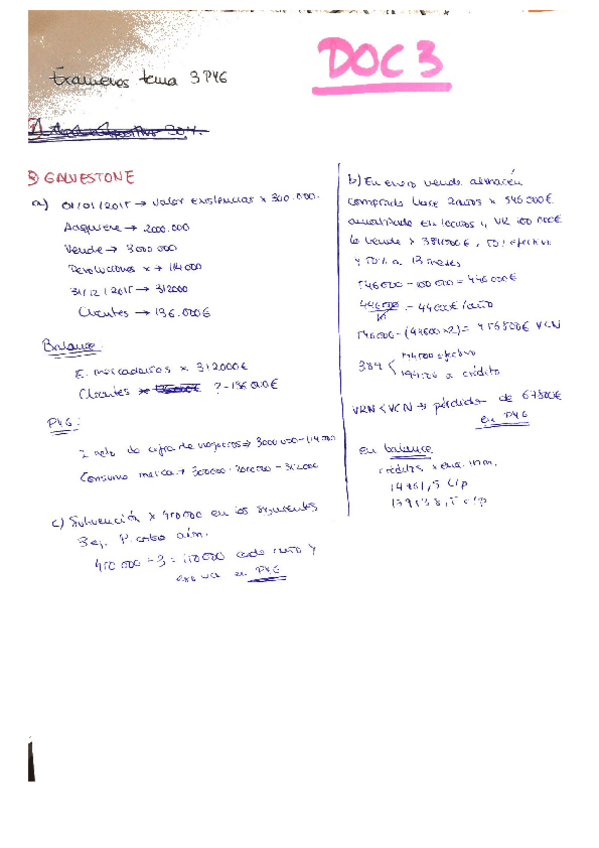 DOC 3
Examenes tema 3 PYG
3) GALVESTONE
a) 01/01/2015 → Valor existencias x 300.000.
Adquiere → 2000.000
Vende → 3000 000
Devoluciones x → 114 000
31/12/2015 → 312000
Clientes → 136.000€
Balance:
E. mercaderías x 312000€
Clientes ? - 136 000€
PYG:
I neto de cifra de negocios → 3000 000 -
Consumo merca. 300000 2000000 - 312000
c) Subvención x 450 000 en los siguientes
3 ej.
450 000 ÷ 3 = 150 000 cada año y
eso va en PYG
b) En enero vende almacén
comprado hace 2 años x 546 000€
amortizado en 10 años, VR 100 000€
lo vende x 389 000€, 50% efectivo
y 50% a 13 meses
546 000 - 100 000 = 446 000€
446 000 / 10 = 44 600€/año
546 000 - (44600 x 2) = 456800€ VCN
389 < 194500 efectivo
a crédito
VRN < VCN → pérdidas de 67800€
en PYG
En balance
créditos x ena. inm.
c/p
l/p